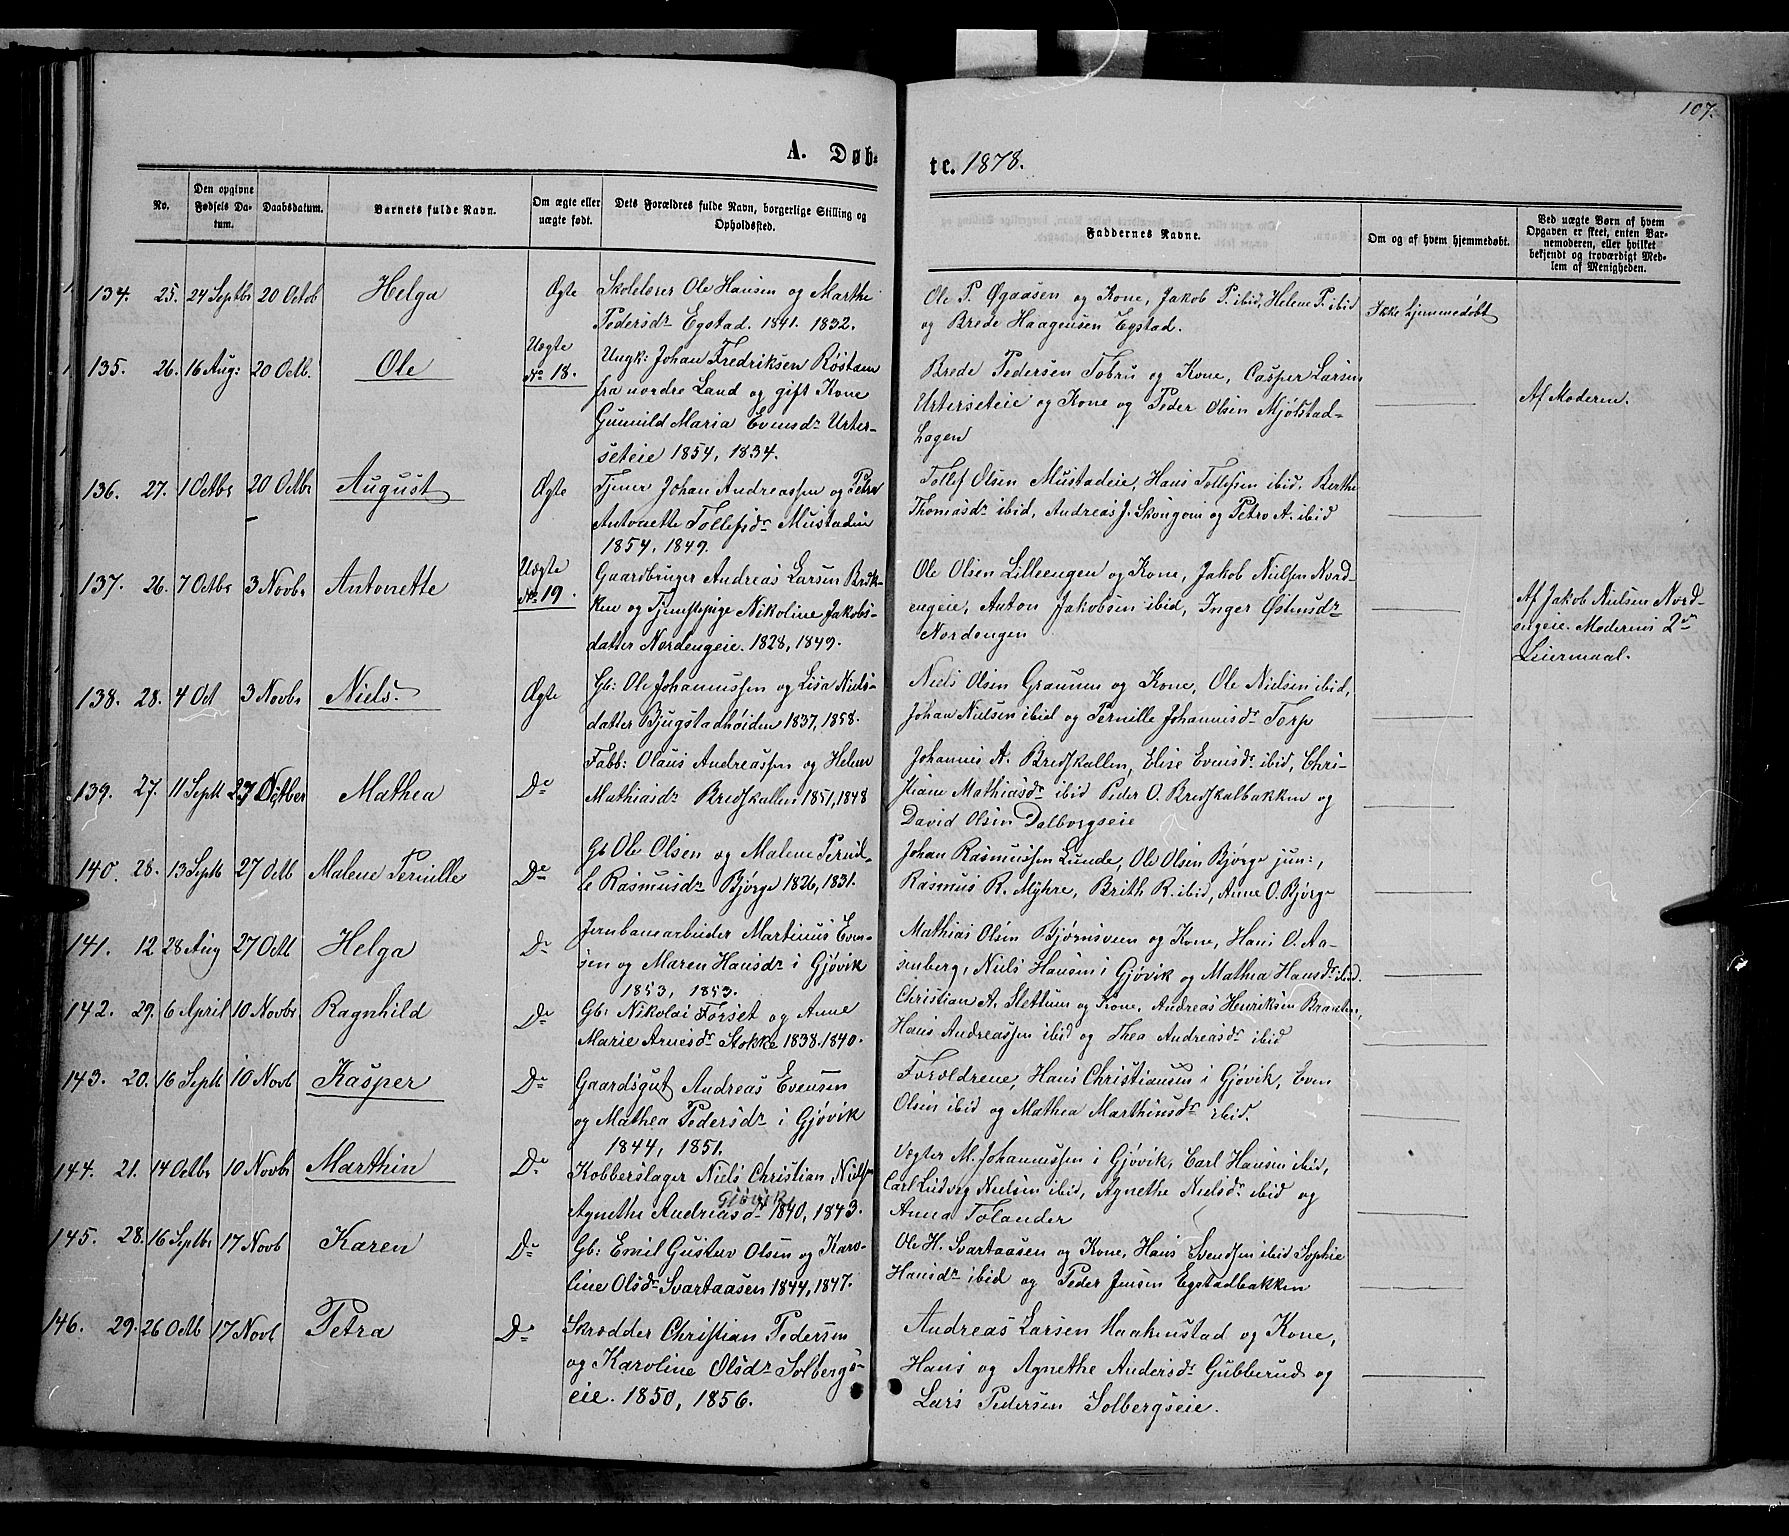 107.
A. Døb-
te. 1878.
No.
Den opgivne Fødsels Da-
tum.
Daabsdatum.
Barnets fulde Navn.
Om ægte eller
uægte født.
Dets Forældres fulde Navn, borgerlige Stilling og
Opholdssted.
Faddernes Navne.
Om og af hvem hjemmedøbt.
Ved uægte Børn af hvem
Opgaven er skeet, enten Bar-
nemoderen, eller hvilket
bekjendt og troværdigt Med-
lem af Menigheden.
134. 25. 24 Septbr 20 Octob Helga Ægte
Skolelærer Ole Hansen og Marthe
Pedersdr Egstad. 1841. 1832.
Ole P. Øgaasen og Kone, Jakob P. ibid, Helene P. ibid
og Brede Haagensen Egstad.
Ikke hjemmedøbt
135. 26. 16 Aug: 20 Octb. Ole Uægte
No 18.
Ungk: Johan Fredriksen Røstøen
fra nordre Land og gift Kone
Gunnild Maria Evensdr Urter-
seteie 1854, 1834.
Brede Pedersen Tobru og Kone, Casper Larsen
Urterseteie og Kone og Peder Olsen Mjølstad-
hagen
Af Moderen.
136. 27. 1 Octbr 20 Octbr August Ægte
Tjener Johan Andreassen og Petra
Antonette Tollefsdr Mustadeie
1854, 1849.
Tollef Olsen Mustadeie, Hans Tollefsen ibid. Berthe
Thomasdr ibid, Andreas J. og Petra A. ibid
137. 26. 7 Octbr 3 Novbr Antonette Uægte
No 19.
Gaardbruger Andreas Larsen Bræk-
ken og Tjenestepige Nikoline Jakobs-
datter Nordengeie. 1828, 1849.
Ole Olsen Lilleengen og Kone, Jakob Nielsen Nord-
engeie, Anton Jakobsen ibid, Inger Østensdr
Nordengen
Af Jakob Nielsen Nord-
engeie. Moderens 2det
Leiermaal.
138. 28. 4 Oct 3 Novbr Niels. Ægte
Gb: Ole Johannessen og Lisa Niels-
datter Bjugstadhøiden 1837, 1858.
Niels Olsen Graunn og Kone, Ole Nielsen ibid,
Johan Nielsen ibid og Pernille Johannesdr Torp
139. 27. 11 Sept 27 Octber Mathea Do
Fabb: Olaus Andreassen og Helene
Mathiasdr Bredskallen 1851, 1848
Johannes A. Bredskallen, Elise Evensdr ibid, Chri-
stiane Mathiasdr ibid Peder O. Bredskalbakken og
David Olsen Dalborgseie
140. 28. 13 Septb 27 Octb Malene Pernille Do
Gb Ole Olsen og Malene Pernil-
le Rasmusdr Bjørge 1826, 1831.
Johan Rasmussen Lunde, Ole Olsen Bjørge jun:,
Rasmus R. Myhre, Brith R. ibid, Anne O. Bjørge
141. 12 28 Aug 27 Octb Helga Do
Jernbanearbeider Martinus Even-
sen og Maren Hansdr i Gjøvik
1853, 1853.
Mathias Olsen Bjørnsveen og Kone, Hans O. Aa-
senberg, Niels Hansen i Gjøvik og Mathea Hansdr ibid.
142. 29. 6 April 10 Novbr Ragnhild Do
Gb: Nikolai Forset og Anne
Marie Arnesdr Stokke 1838. 1840.
Christian A. Slettum og Kone, Andreas Henriksen Braaten,
Hans Andreassen ibid og Thea Andreasdr ibid
143. 20. 16 Septb 10 Novb Kasper Do
Gaardsgut Andreas Evensen
og Mathea Pedersdr i Gjøvik
1844, 1851.
Forældrene, Hans Christiansen i Gjøvik, Even
Olsen ibid og Mathea Marthinsdr ibid.
144. 21. 14 Octbr 10 Novbr Marthin Do
Kobberslager Niels Christian Nielsen
Gjøvik
Agnethe Andreasdr 1840, 1843.
Vægter M. Johannessen i Gjøvik, Carl Hansen ibid,
Carl Ludvig Nielsen ibid, Agnethe Nielsdr ibid og
Anna Tolander
145. 28. 16 Septbr 17 Novb Karen Do
Gb: Emil Gustav Olsen og Karo-
line Olsdr Svartaasen 1844, 1847.
Ole H. Svartaasen og Kone, Hans Svendsen ibid Sophie
Hansdr ibid og Peder Jensen Egstadbakken
146. 29. 26 Octb 17 Novb Petra Do
Skrædder Christian Pedersen
og Karoline Olsdr Solbergs-
eie. 1850, 1856.
Andreas Larsen Haakenstad og Kone,
Hans og Agnethe Andersdr Gubberud og
Lars Pedersen Solbergseie.